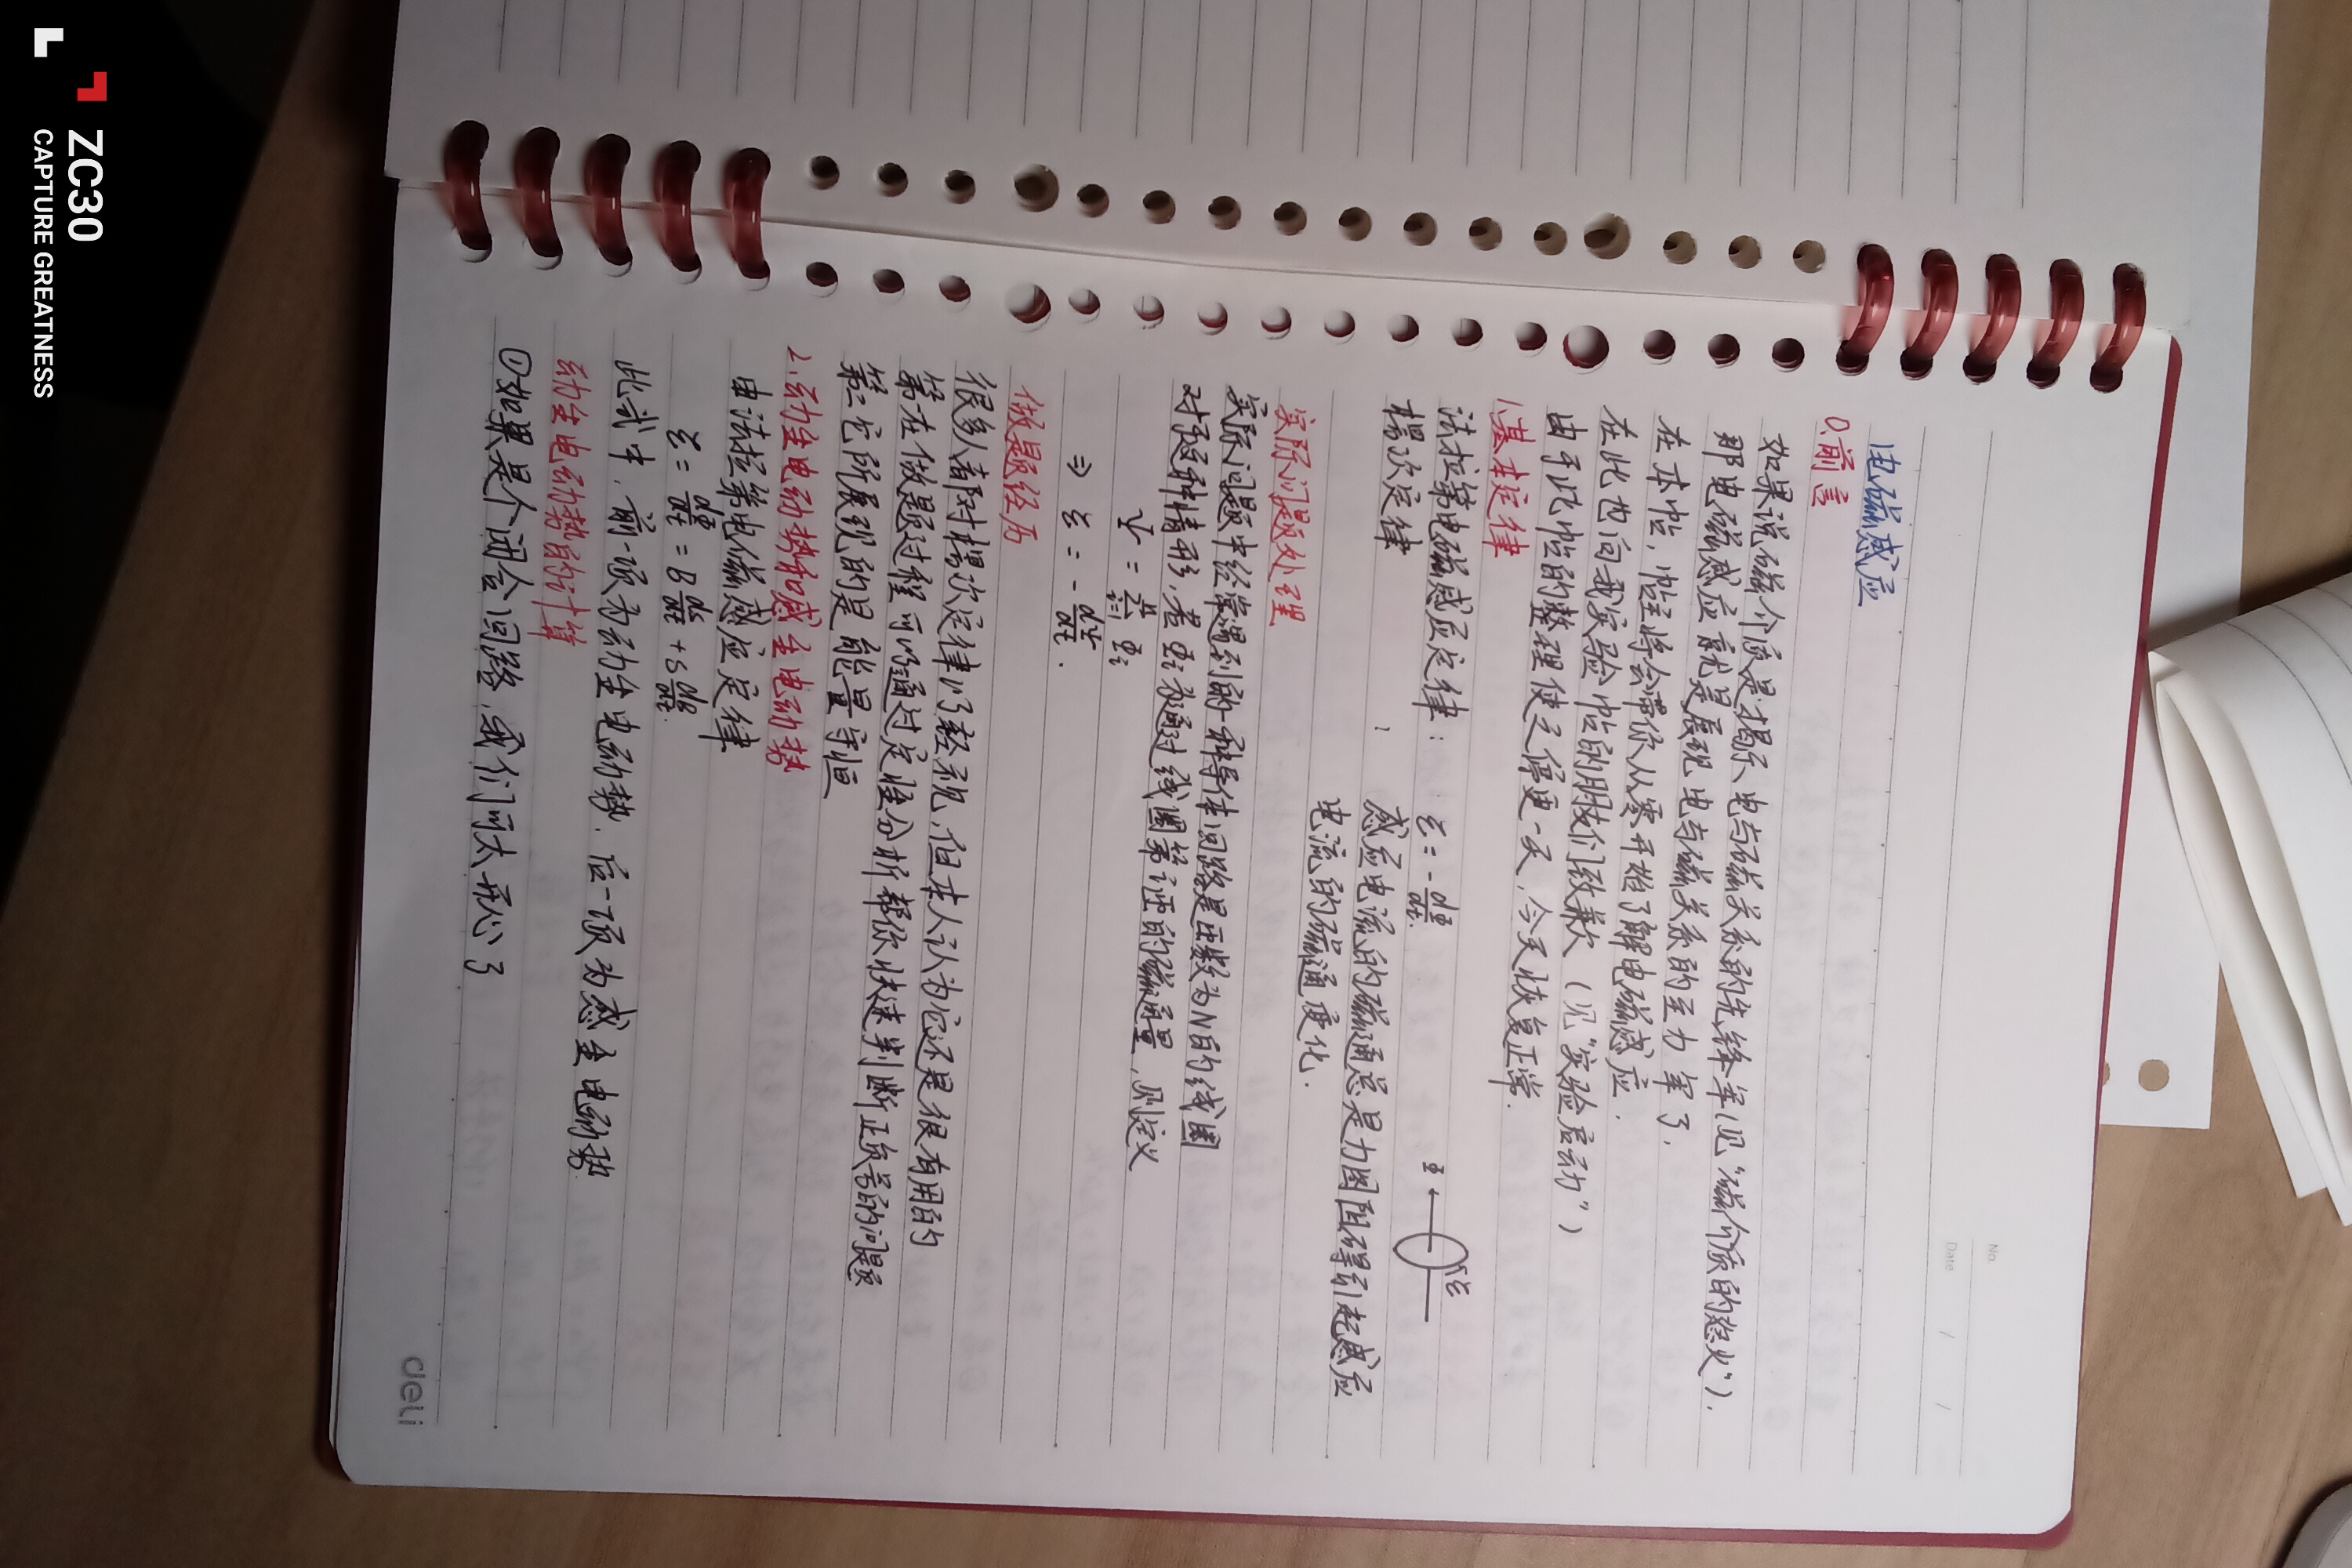 No.
Date / /
电磁感应
0.前言
如果说磁介质是揭示电与磁关系的先锋军(见“磁介质的怒火”).
那电磁感应就是展现电与磁关系的主力军了.
在本帖,帖主将会带你从零开始了解电磁感应.
在此也向我实验帖的朋友们致歉(见“实验启动”)
由于此帖的整理使之停更一天,今天恢复正常.
1.基本定律
法拉第电磁感应定律: ε = -dΦ/dt. Φ ε
楞次定律: 感应电流的磁通总是力图阻碍引起感应
电流的磁通变化.
实际问题处理
实际问题中经常遇到的一种导体回路是匝数为N的线圈
对于这种情形,若Φi表通过线圈第i匝的磁通量,则定义
Ψ = Σ(i=1→n) Φi
⇒ ε = -dΨ/dt.
做题经历
很多人都对楞次定律以轻视,但本人认为它还是很有用的
第一,在做题过程可以通过定性分析帮你快速判断正负号的问题
第二它所展现的是能量守恒
2.动生电动势和感生电动势
由法拉第电磁感应定律
ε = dΦ/dt = B dS/dt + S dB/dt.
此式中,前一项为动生电动势,后一项为感生电动势
动生电动势的计算
①如果是个闭合回路,我们可太开心了
deli
ZC30
CAPTURE GREATNESS